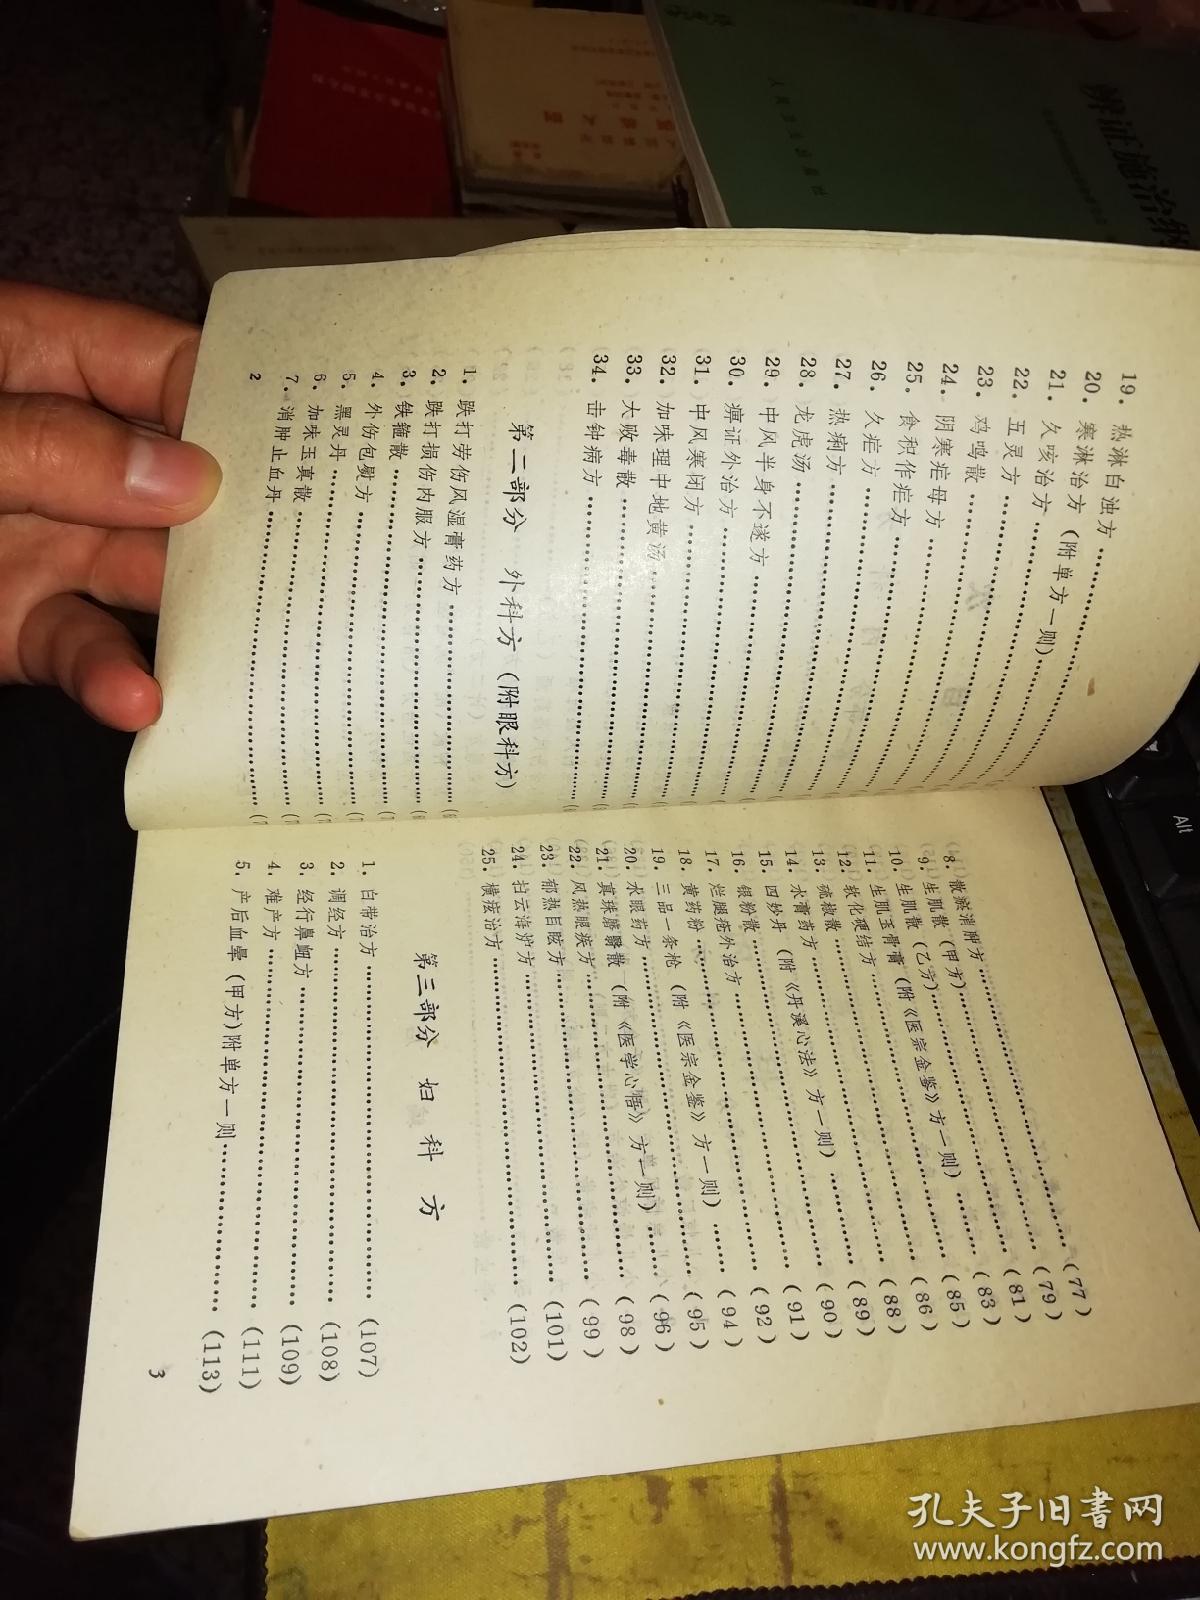 19. 热淋白浊方
20. 寒淋治方（附单方一则）
21. 久咳治方
22. 五灵方
23. 鸡鸣散
24. 阴寒疟母方
25. 食积作疟方
26. 久疟方
27. 热痢方
28. 龙虎汤
29. 中风半身不遂方
30. 痹证外治方
31. 中风寒闭方
32. 加味理中地黄汤
33. 大败毒散
34. 击钟病方
第二部分 外科方（附眼科方）
1. 跌打劳伤风湿膏药方
2. 跌打损伤内服方
3. 铁箍散
4. 外伤包熨方
5. 黑灵丹
6. 加味玉真散
7. 消肿止血丹
2
8. 散瘀消肿方 (77)
9. 生肌散（甲方） (79)
生肌散（乙方） (81)
10. 生肌玉骨膏（附《医宗金鉴》方一则） (83)
11. 软化硬结方 (85)
12. 硫椒散 (86)
13. 水膏药方 (88)
14. 四妙丹（附《丹溪心法》方一则） (89)
15. 银粉散 (90)
16. 烂腿疮外治方 (91)
17. 黄药粉 (92)
18. 三品一条枪（附《医宗金鉴》方一则） (94)
19. 水眼药方 (95)
20. 真珠膀翳散（附《医学心悟》方一则） (96)
21. 风热眼疾方 (98)
22. 郁热目眩方 (99)
23. 扫云
24. (101)
25. 横痃治方 (102)
第三部分 妇科方
1. 白带治方 (107)
2. 调经方 (108)
3. 经行鼻衄方 (109)
4. 难产方 (111)
5. 产后血晕（甲方）附单方一则 (113)
3
辨证施治纲
人民卫生出版社
Alt
孔夫子旧书网
www.kongfz.com